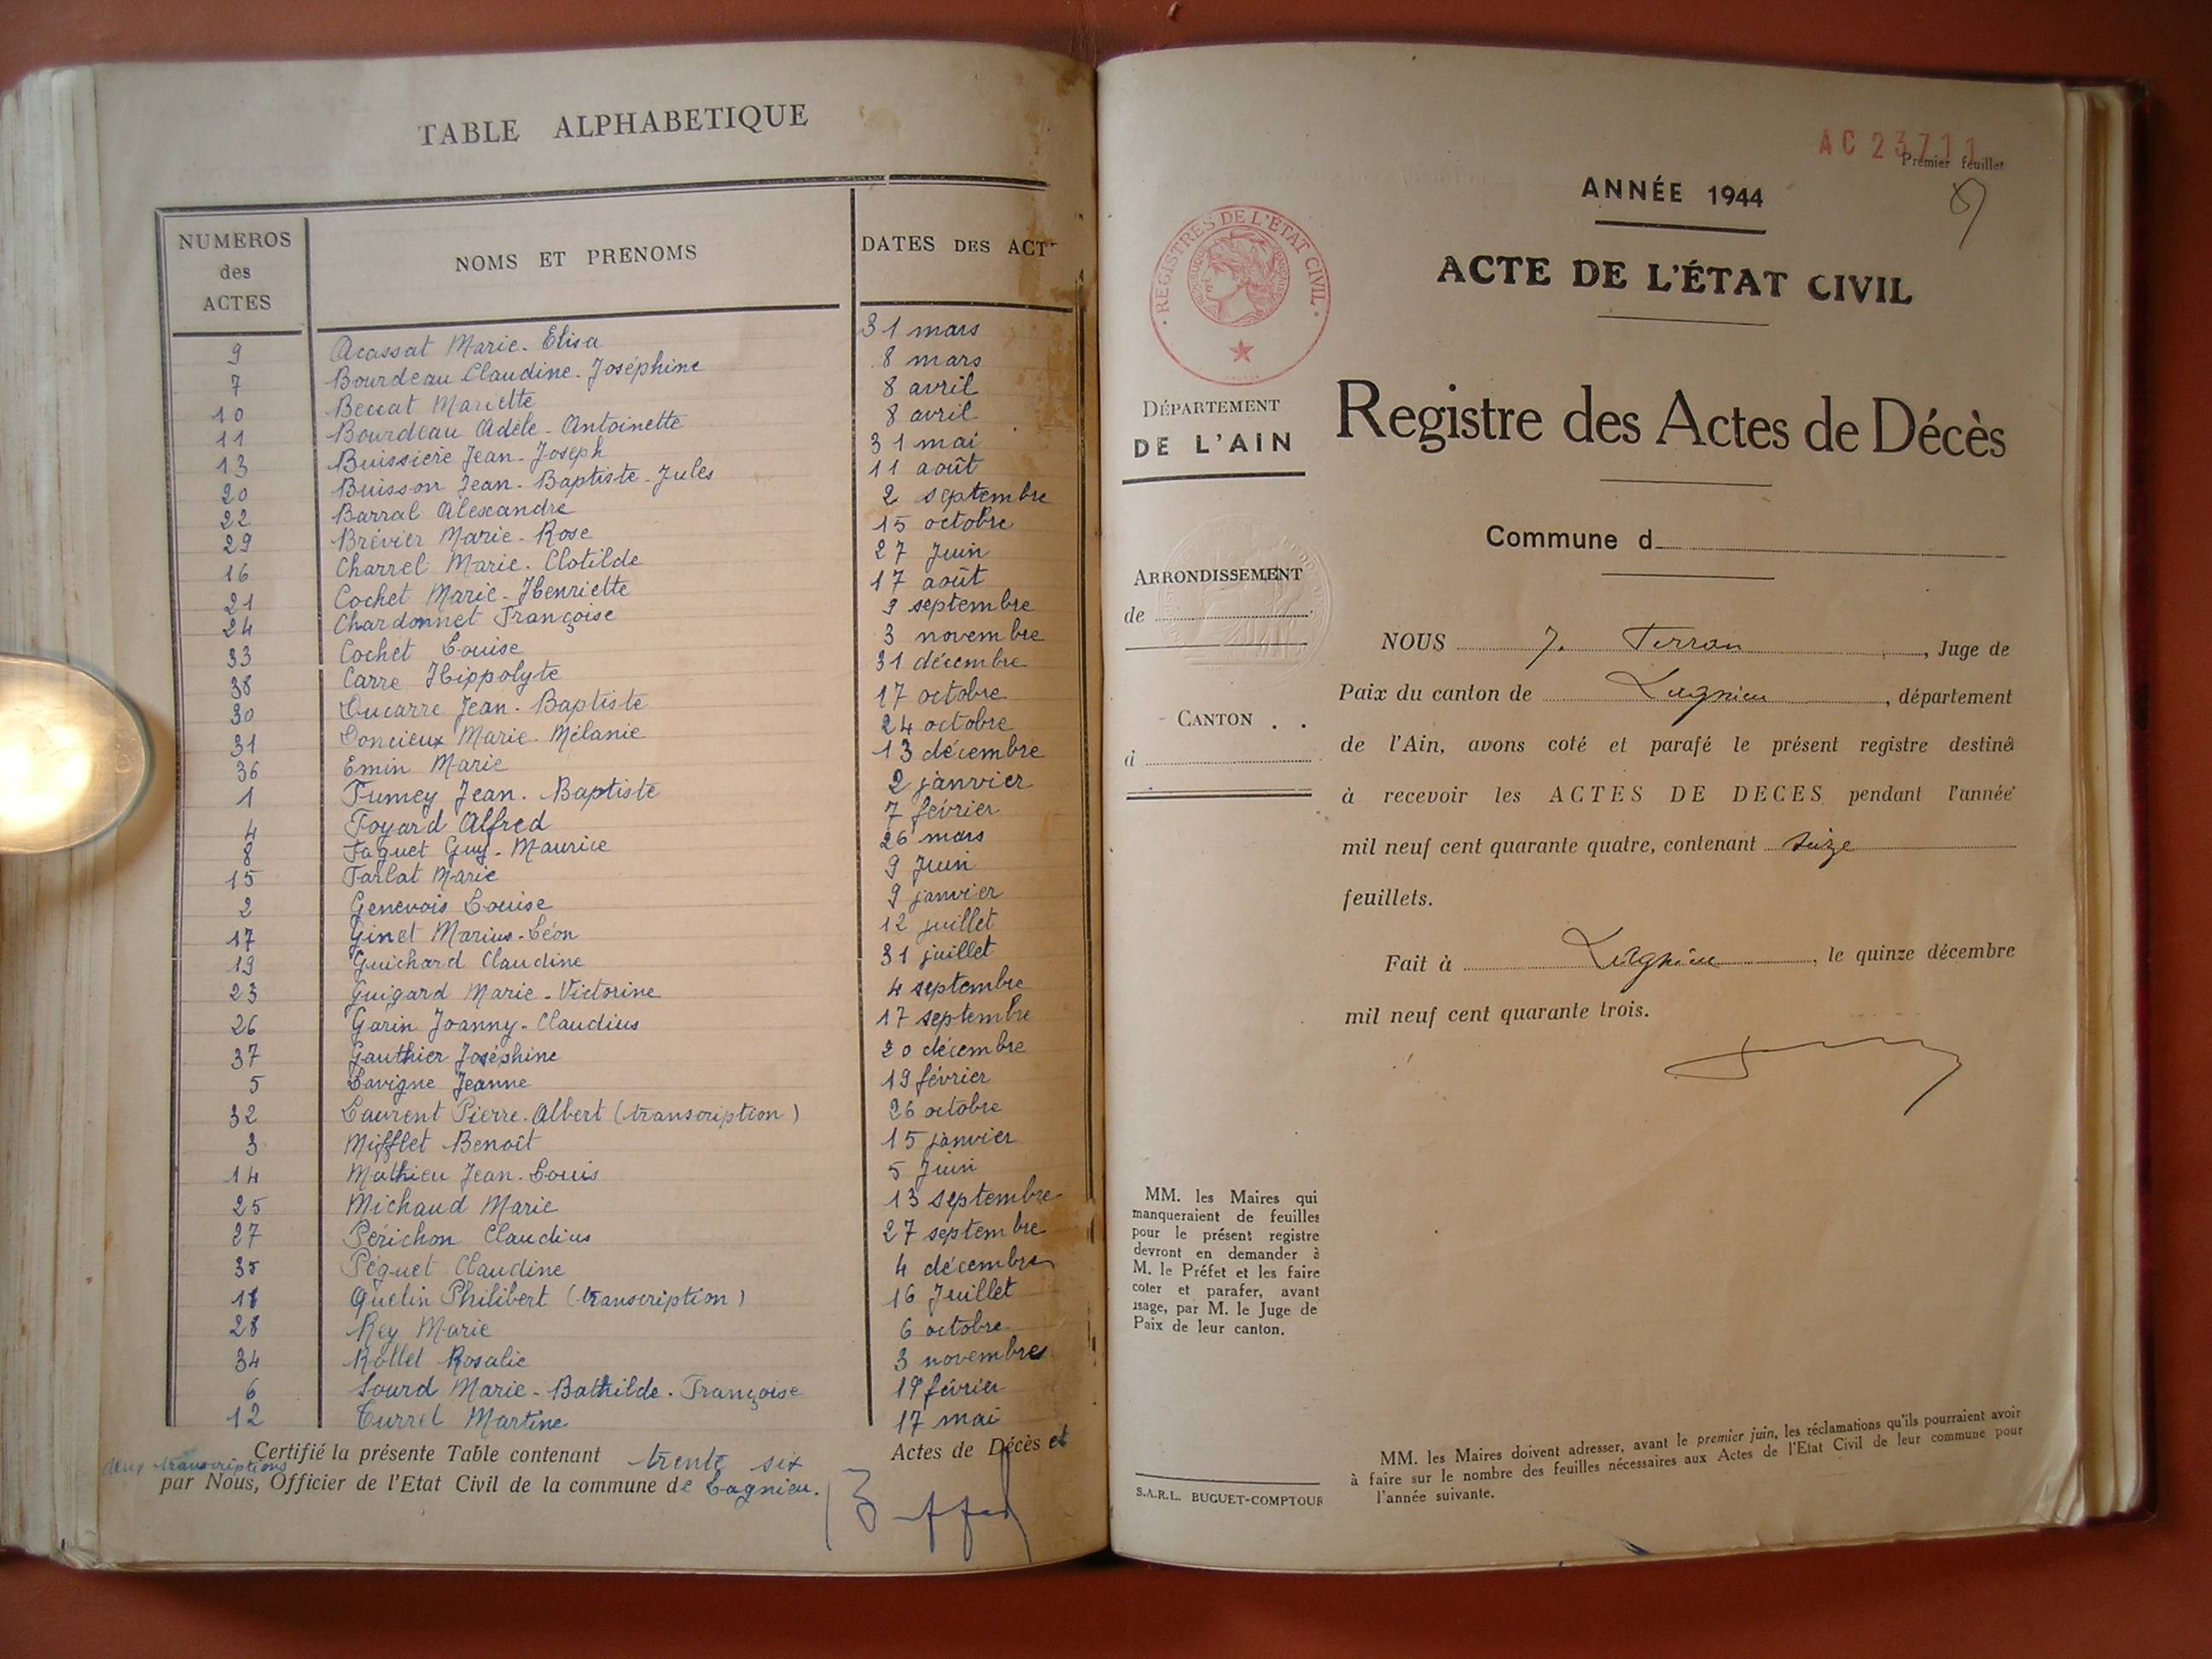 TABLE ALPHABETIQUE
NUMEROS des ACTES
NOMS ET PRENOMS
DATES DES ACT
9 Acassat Marie-Elisa 31 mars
7 Bourdeau Claudine-Joséphine 8 mars
10 Beccat Mariette 8 avril
11 Bourdeau Adèle-Antoinette 8 avril
13 Buissière Jean-Joseph 31 mai
20 Buisson Jean-Baptiste-Jules 11 août
22 Barral Alexandre 2 septembre
29 Brévier Marie-Rose 15 octobre
16 Charrel Marie-Clotilde 27 Juin
21 Cochet Marie-Henriette 17 août
24 Chardonnet Françoise 9 septembre
33 Cochet Louise 3 novembre
38 Carre Hippolyte 31 décembre
30 Ducarre Jean-Baptiste 17 octobre
31 Doncieux Marie-Mélanie 24 octobre
36 Emin Marie 13 décembre
1 Fumey Jean-Baptiste 2 janvier
4 Foyard Alfred 7 février
8 Faguet Guy-Maurice 26 mars
15 Farlat Marie 9 Juin
2 Genevois Louise 9 janvier
17 Ginet Marius-Léon 12 juillet
19 Guichard Claudine 31 juillet
23 Guigard Marie-Victorine 4 septembre
26 Garin Joanny-Claudius 17 septembre
37 Gauthier Joséphine 20 décembre
5 Lavigne Jeanne 19 février
32 Laurent Pierre-Albert (transcription) 26 octobre
3 Mifflet Benoît 15 janvier
14 Mathieu Jean-Louis 5 Juin
25 Michaud Marie 13 septembre
27 Périchon Claudius 27 septembre
35 Péguet Claudine 4 décembre
18 Quelin Philibert (transcription) 16 Juillet
28 Rey Marie 6 octobre
34 Rollet Rosalie 3 novembre
6 Sourd Marie-Bathilde-Françoise 19 février
12 Turrel Martine 17 mai
Certifié la présente Table contenant trente six Actes de Décès et
deux transcriptions
par Nous, Officier de l'Etat Civil de la commune de Lagnieu.
AC 23711
Premier feuillet
ANNÉE 1944
ACTE DE L'ÉTAT CIVIL
REGISTRES DE L'ÉTAT CIVIL
DÉPARTEMENT
DE L'AIN
Registre des Actes de Décès
Commune d
ARRONDISSEMENT
de
CANTON
à
NOUS J. Terran, Juge de
Paix du canton de Lagnieu, département
de l'Ain, avons coté et parafé le présent registre destiné
à recevoir les ACTES DE DECES pendant l'année
mil neuf cent quarante quatre, contenant seize
feuillets.
Fait à Lagnieu, le quinze décembre
mil neuf cent quarante trois.
MM. les Maires qui
manqueraient de feuilles
pour le présent registre
devront en demander à
M. le Préfet et les faire
coter et parafer, avant
usage, par M. le Juge de
Paix de leur canton.
S.A.R.L. BUGUET-COMPTOUR
MM. les Maires doivent adresser, avant le premier juin, les réclamations qu'ils pourraient avoir
à faire sur le nombre des feuilles nécessaires aux Actes de l'Etat Civil de leur commune pour
l'année suivante.